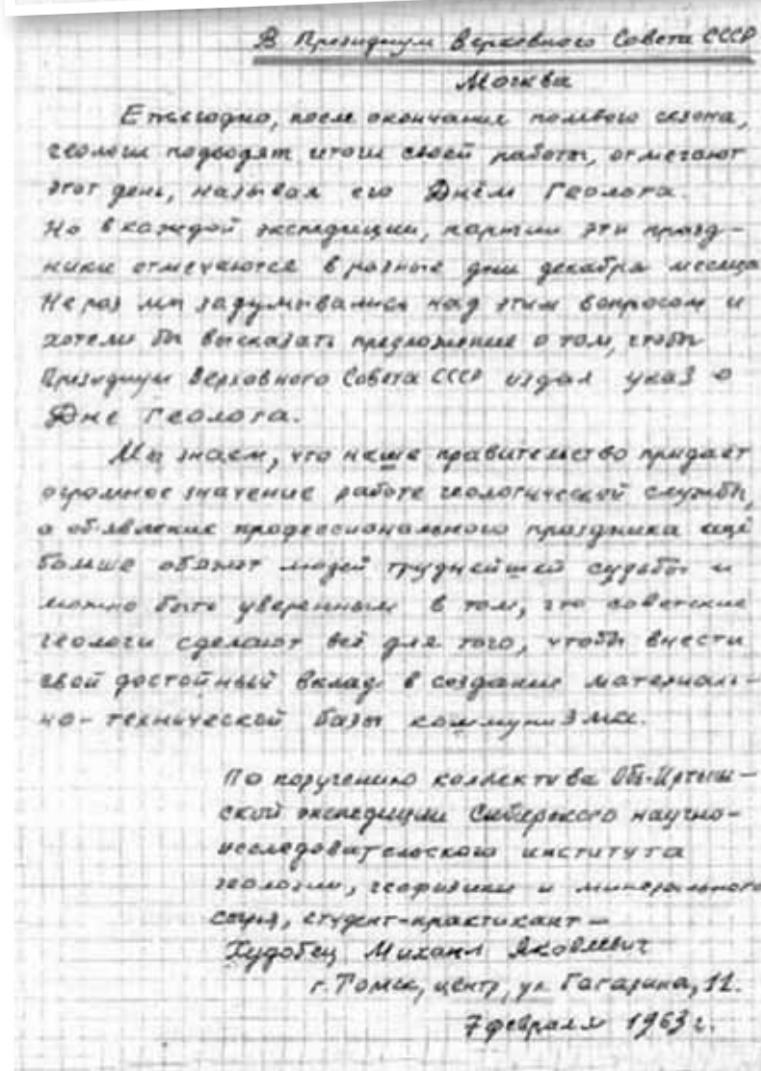 В Президиум Верховного Совета СССР
Москва
Ежегодно, после окончания полевого сезона,
геологи подводят итоги своей работы, отмечают
этот день, называя его Днём Геолога.
Но в каждой экспедиции, партии эти празд-
ники отмечаются в разные дни декабря месяца
Не раз мы задумывались над этим вопросом и
хотели бы высказать предложение о том, чтобы
Президиум Верховного Совета СССР издал указ о
Дне Геолога.
Мы знаем, что наше правительство придаёт
огромное значение работе геологической службы,
а объявление профессионального праздника ещё
больше обяжет людей труднейшей судьбы и
можно быть уверенным в том, что советские
геологи сделают всё для того, чтобы внести
свой достойный вклад в создание материаль-
но-технической базы коммунизма.
По поручению коллектива Обь-Иртыш-
ской экспедиции Сибирского научно-
исследовательского института
геологии, геофизики и минерального
сырья, студент-практикант —
Худобец Михаил Яковлевич
г. Томск, центр, ул. Гагарина, 11.
7 февраля 1963 г.